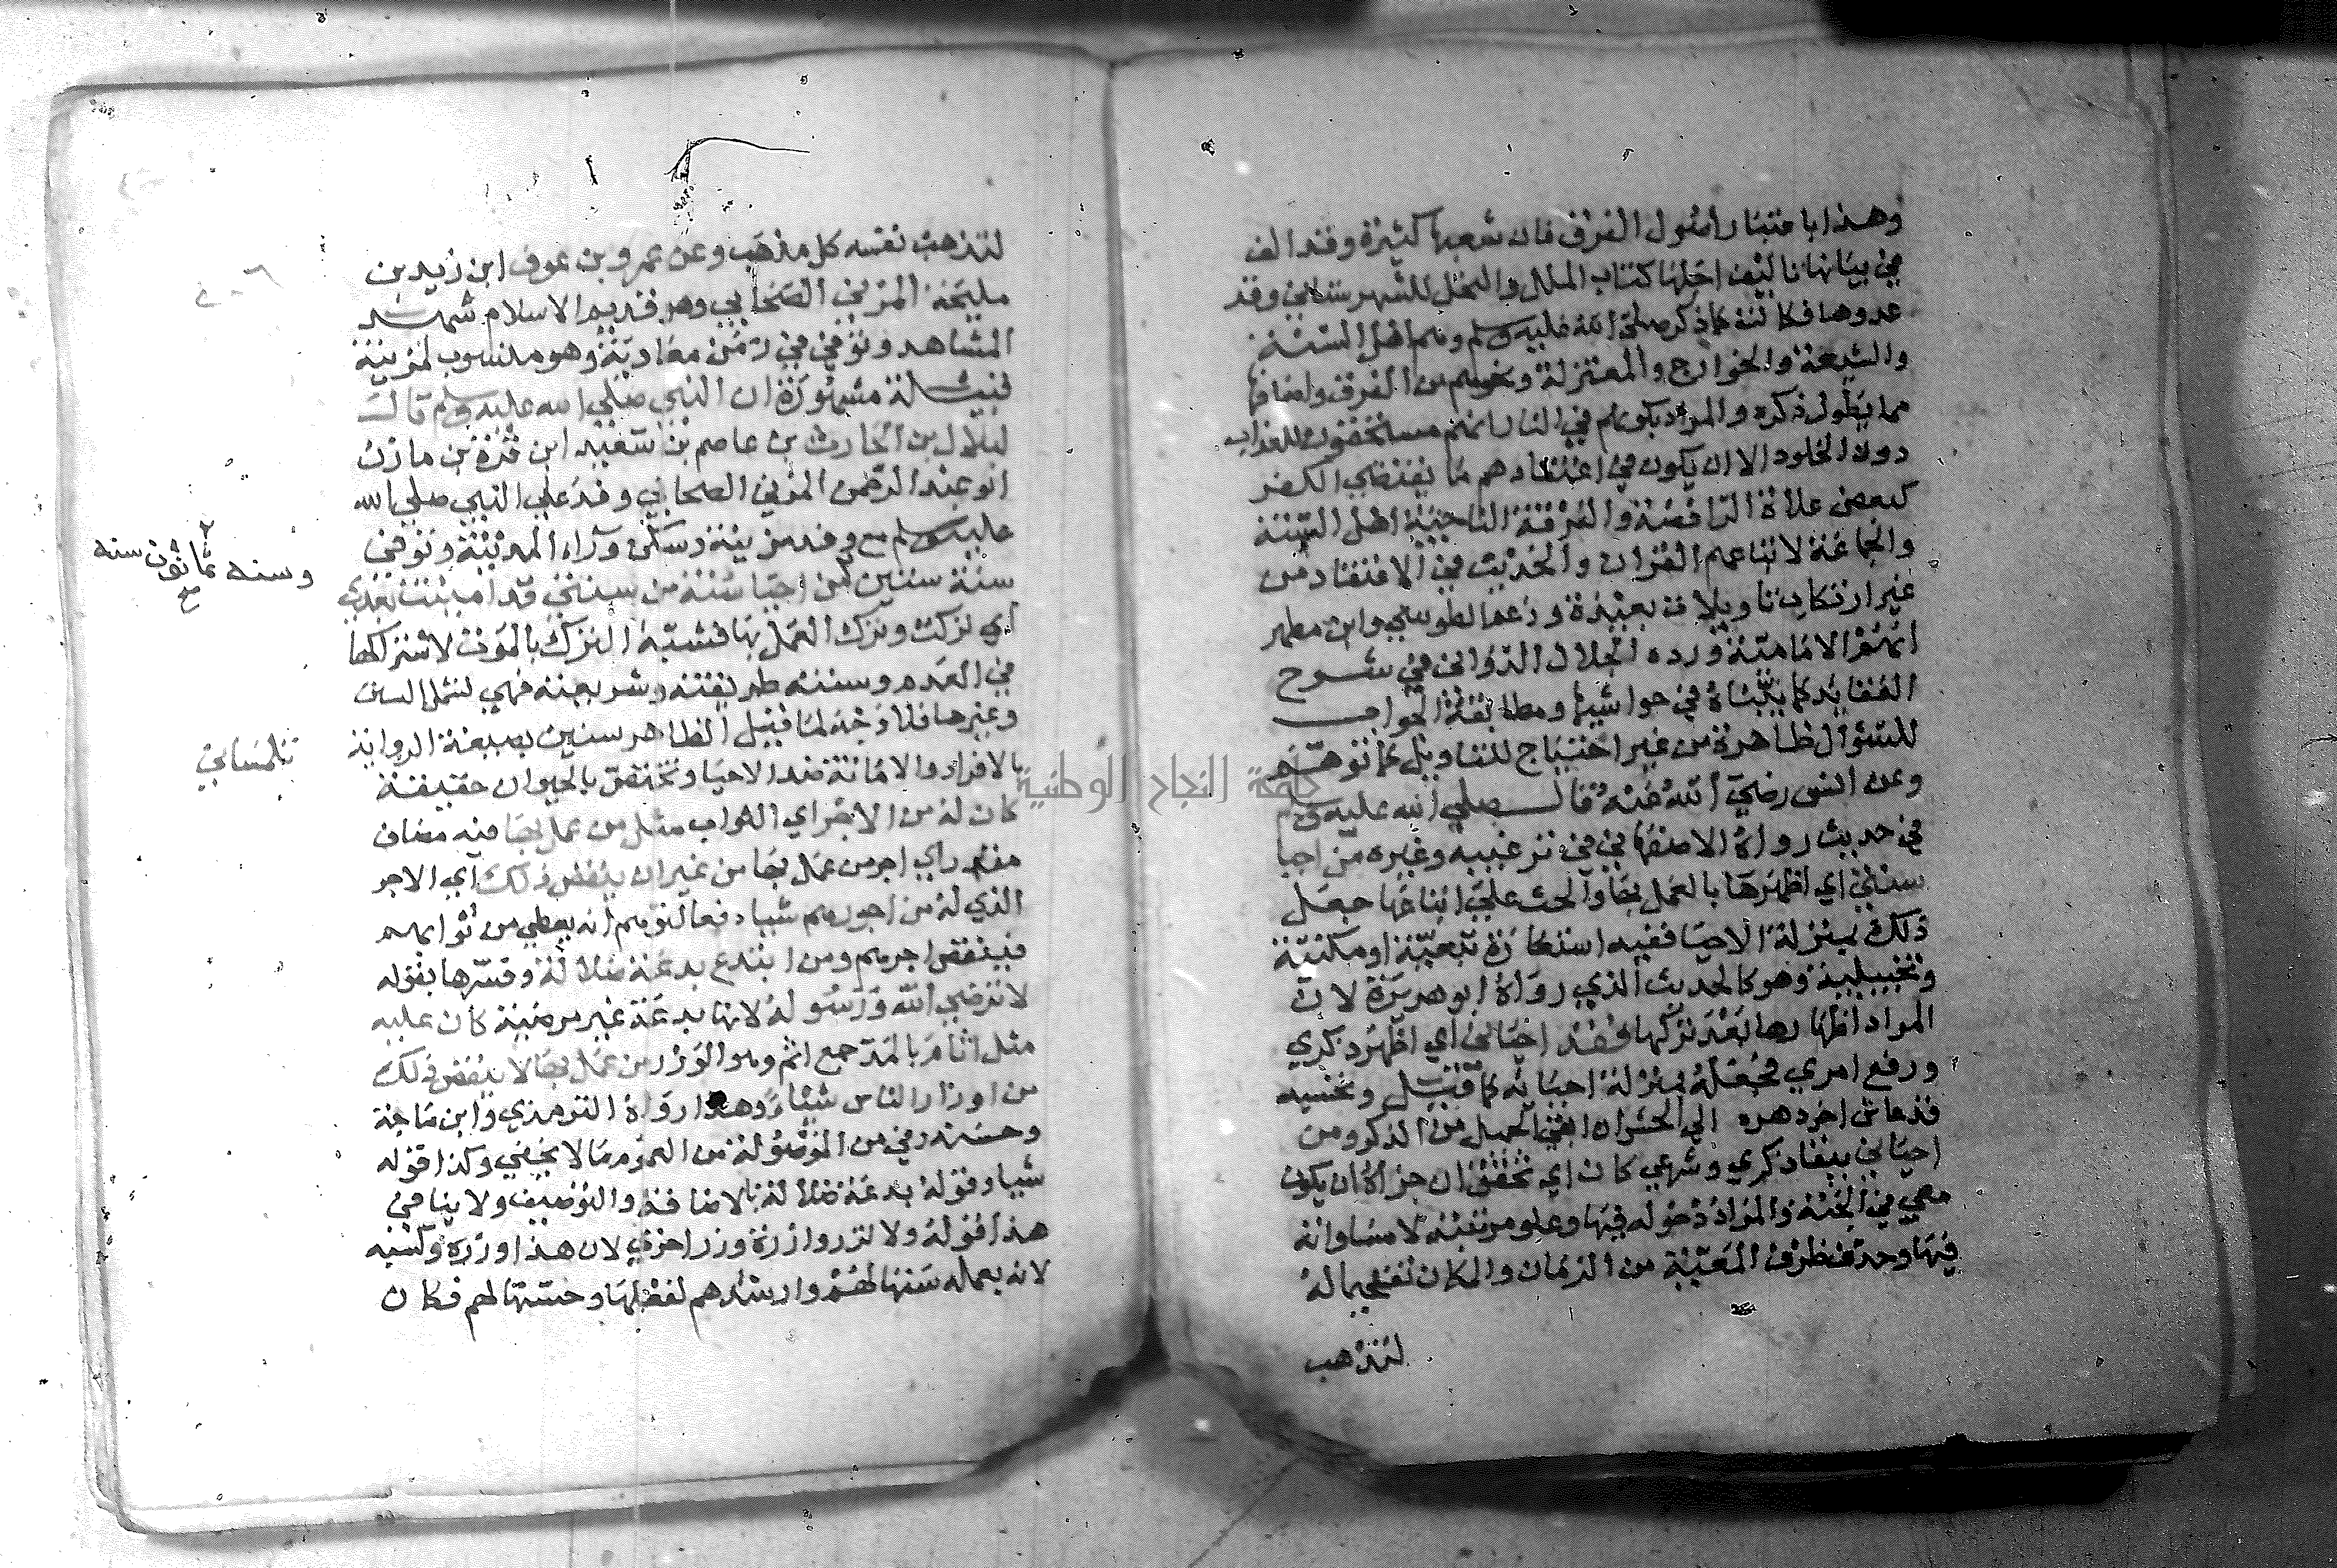 وهذا باعتبار اصول الفرق فان شعبها كثيرة وقد الف
في بيانها تاليف اجلها كتاب الملل والنحل للشهرستاني وقد
عدوها فكانت كما ذكر صلى الله عليه وسلم ومنهم اهل السنة
والشيعة والخوارج والمعتزلة ونحوهم من الفرق واصنافها
مما يطول ذكره والمراد بكونهم في النار انهم مستحقون للعذاب
دون الخلود الا ان يكون في اعتقادهم ما يقتضي الكفر
كبعض غلاة الرافضة والفرقة الناجية اهل السنة
والجماعة لاتباعهم القران والحديث في الاعتقاد من
غير ارتكاب تاويلات بعيدة وزعم الطوسي وابن مطهر
انهم الامامية ورده الجلال الدواني في شرح
العقايد كما بيناه في حواشيها ومطابقة الجواب
للسؤال ظاهرة من غير احتياج للتاويل كما توهم
وعن انس رضي الله عنه قال صلى الله عليه وسلم
في حديث رواه الاصفهاني في ترغيبه وغيره من احيا
سنتي اي اظهرها بالعمل بها والحث على اتباعها جعل
ذلك بمنزلة الاحيا ففيه استعارة تبعية او مكنية
وتخييلية وهو كالحديث الذي رواه ابو هريرة لان
المراد اظهارها بعد تركها فقد احياني اي اظهر ذكري
ورفع امري فجعله بمنزلة احيائه كما قيل وتحسبه
قد عاش اخر دهره الى الحشر ان ابقى الجميل من الذكر ومن
احياني ببقاء ذكري وشرعي كان اي تحقق ان جزاه ان يكون
معي في الجنة والمراد دخوله فيها وعلو مرتبته لا مساواته
فيها وحذف ظرف المعية من الزمان والمكان تفخيما له
لتذهب
لتذهب نفسه كل مذهب وعن عمرو بن عوف ابن زيد بن
مليحة المزني الصحابي وهو قديم الاسلام شهد
المشاهد وتوفي في زمن معاوية وهو منسوب لمزينة
قبيلة مشهورة ان النبي صلى الله عليه وسلم قال
لبلال بن الحارث بن عاصم بن سعيد ابن قرة بن مازن
ابو عبد الرحمن المزني الصحابي وفد على النبي صلى الله
عليه وسلم مع وفد مزينة وسكن وراء المدينة وتوفي
سنة ستين من احيا سنة من سنتي قد اميتت بعدي
اي تركت وترك العمل بها فشبه الترك بالموت لاشتراكهما
في العدم وسنته طريقته وشريعته فهي تشمل السنن
وغيرها فلا وجه لما قيل الظاهر سنين بصيغة الرواية
بالافراد والاماتة ضد الاحيا وتختص بالحيوان حقيقة
كان له من الاجر اي الثواب مثل من عمل بها فيه مضاف
مقدر اي اجر من عمل بها من غير ان ينقص ذلك اي الاجر
الذي له من اجورهم شيا دفعا لتوهم انه يعطي من ثوابهم
فينقص اجرهم ومن ابتدع بدعة ضلالة وفسرها بقوله
لا ترضي الله ورسوله لانها بدعة غير مرضية كان عليه
مثل اثام بالمد جمع اثم وهو الوزر من عمل بها لا ينقص ذلك
من اوزار الناس شيئا وهذا رواه الترمذي وابن ماجة
وحسنه
شيا وقوله بدعة ضلالة بالاضافة والتوصيف ولا ينافي
هذا قوله ولا تزر وازرة وزر اخرى لان هذا وزره وكسبه
لانه بعمله سنها لهم وارشدهم لفعلها وحسنها لهم فكان
وسنه ثمانون سنه
صح
تلمساني
جامعة النجاح الوطنية